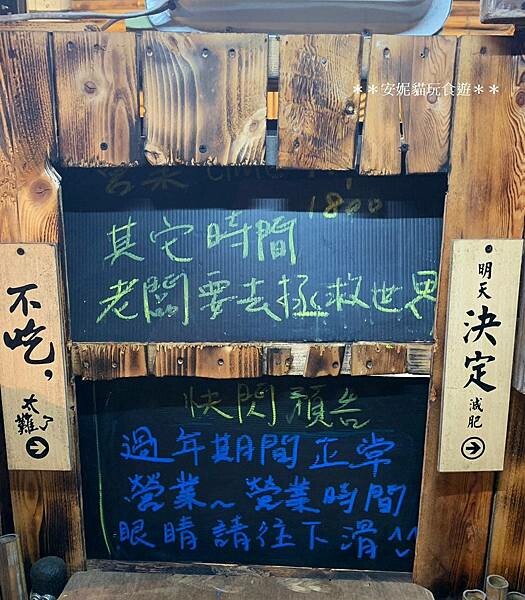 ＊＊安妮貓玩食遊＊＊
1800
其它時間
老闆要去拯救世界
不吃，
太難了
明天
決定
減肥
快閃預告
過年期間正常
營業～營業時間
眼睛請往下滑^^